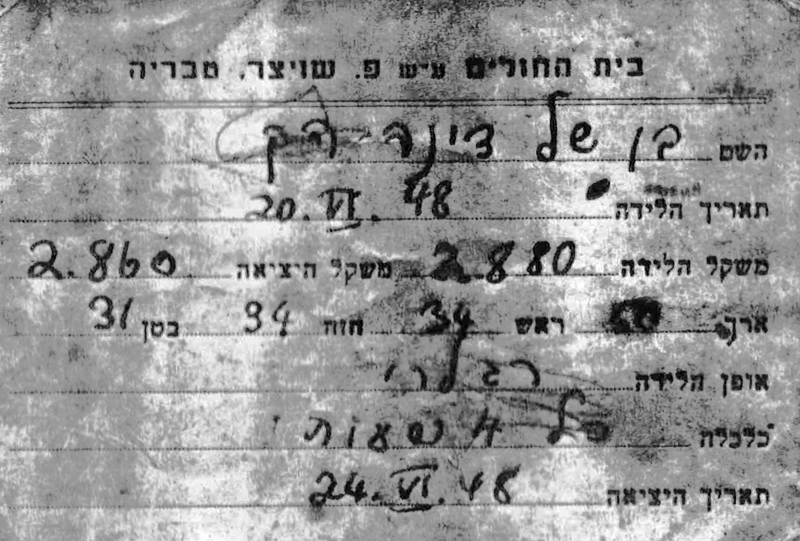 בית החולים ע״ש פ. שויצר. טבריה
השם בן של דינה
תאריך הלידה 20.VI.48
משקל הלידה 2880 משקל היציאה 2.860
ארך 50 ראש 34 חזה 34 בטן 31
אופן הלידה רגלרי
כלכלה כל 4 שעות
תאריך היציאה 24.VI.48